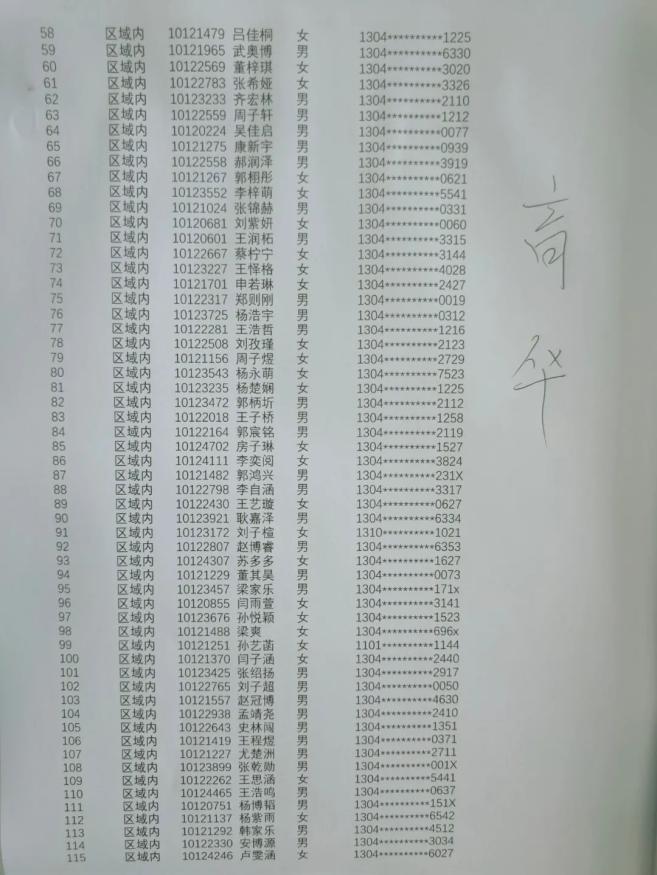 58 区域内 10121479 吕佳桐 女 1304**********1225
59 区域内 10121965 武奥博 男 1304**********6330
60 区域内 10122569 董梓琪 女 1304**********3020
61 区域内 10122783 张希娅 女 1304**********3326
62 区域内 10123233 齐宏林 男 1304**********2110
63 区域内 10122559 周子轩 男 1304**********1212
64 区域内 10120224 吴佳启 男 1304**********0077
65 区域内 10121275 康新宇 男 1304**********0939
66 区域内 10122558 郝润泽 男 1304**********3919
67 区域内 10121267 郭栩彤 女 1304**********0621
68 区域内 10123552 李梓萌 女 1304**********5541
69 区域内 10121024 张锦赫 男 1304**********0331
70 区域内 10120681 刘紫妍 女 1304**********0060
71 区域内 10120601 王润柘 男 1304**********3315
72 区域内 10122667 蔡柠宁 女 1304**********3144
73 区域内 10123227 王怿格 女 1304**********4028
74 区域内 10121701 申若琳 女 1304**********2427
75 区域内 10122317 郑则刚 男 1304**********0019
76 区域内 10123725 杨浩宇 男 1304**********0312
77 区域内 10122281 王浩哲 男 1304**********1216
78 区域内 10122508 刘孜瑾 女 1304**********2123
79 区域内 10121156 周子煜 女 1304**********2729
80 区域内 10123543 杨永萌 女 1304**********7523
81 区域内 10123235 杨楚娴 女 1304**********1225
82 区域内 10123472 郭柄圻 男 1304**********2112
83 区域内 10122018 王子桥 男 1304**********1258
84 区域内 10122164 郭宸铭 男 1304**********2119
85 区域内 10124702 房子琳 女 1304**********1527
86 区域内 10124111 李奕阅 女 1304**********3824
87 区域内 10121482 郭鸿兴 男 1304**********231X
88 区域内 10122798 李自涵 男 1304**********3317
89 区域内 10122430 王艺璇 女 1304**********0627
90 区域内 10123921 耿嘉泽 男 1304**********6334
91 区域内 10123172 刘子楦 女 1310**********1021
92 区域内 10122807 赵博睿 男 1304**********6353
93 区域内 10124307 苏多多 女 1304**********1627
94 区域内 10121229 董其昊 男 1304**********0073
95 区域内 10123457 梁家乐 男 1304**********171x
96 区域内 10120855 闫雨萱 女 1304**********3141
97 区域内 10123676 孙悦颖 女 1304**********1523
98 区域内 10121488 梁爽 女 1304**********696x
99 区域内 10121251 孙艺菡 女 1101**********1144
100 区域内 10121370 闫子涵 女 1304**********2440
101 区域内 10123425 张绍扬 男 1304**********2917
102 区域内 10122765 刘子超 男 1304**********0050
103 区域内 10121557 赵冠博 男 1304**********4630
104 区域内 10122938 孟靖尧 男 1304**********2410
105 区域内 10122643 史林闯 男 1304**********1351
106 区域内 10121419 王程煜 男 1304**********0371
107 区域内 10121227 尤楚洲 男 1304**********2711
108 区域内 10123899 张乾勋 男 1304**********001X
109 区域内 10122262 王思涵 女 1304**********5441
110 区域内 10124465 王浩鸣 男 1304**********0637
111 区域内 10120751 杨博韬 男 1304**********151X
112 区域内 10121137 杨紫雨 女 1304**********6542
113 区域内 10121292 韩家乐 男 1304**********4512
114 区域内 10122330 安博源 男 1304**********3034
115 区域内 10124246 卢雯涵 女 1304**********6027
育华